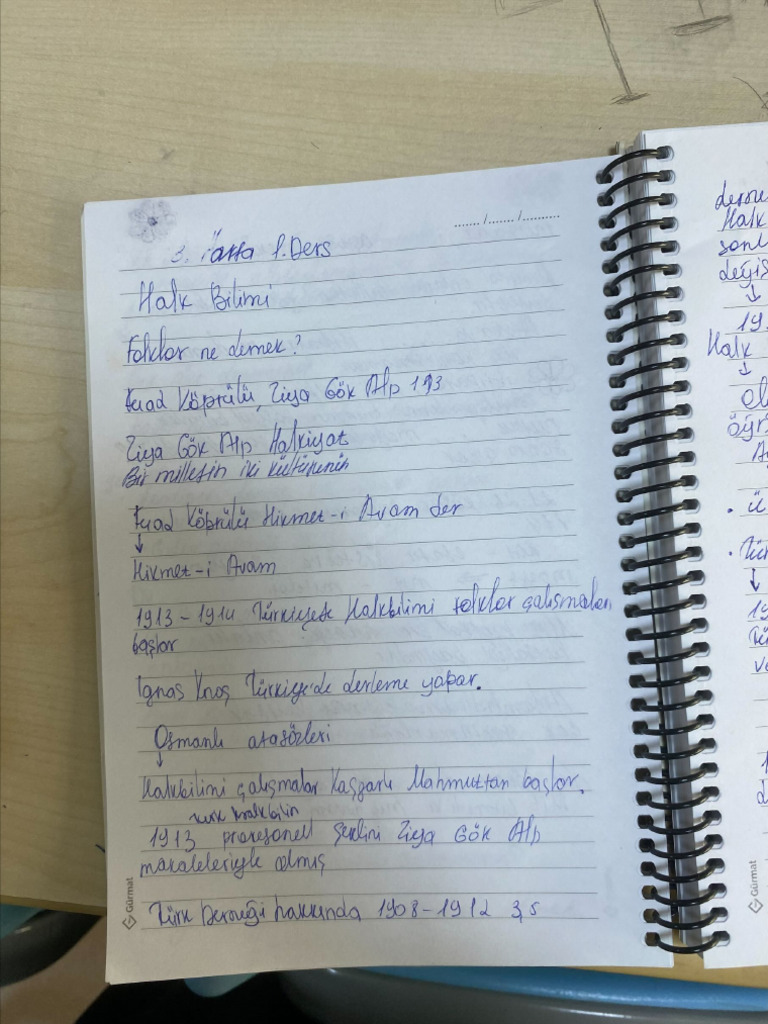 ....... / ....... / ..........
3. Hafta 1. Ders
Halk Bilimi
Folklor ne demek?
Fuad Köprülü, Ziya Gök Alp 193
Ziya Gök Alp Halkiyat
Bir milletin iki kültürünün
Fuad Köprülü Hikmet-i Avam der
↓
Hikmet-i Avam
1913-1914 Türkiyede Halkbilimi folklor çalışmaları
başlar
Ignas Knoş Türkiye'de derleme yapar.
Osmanlı atasözleri
↓
Halkbilimi çalışmalar Kaşgarlı Mahmuttan başlar.
Türk Halkbilin
1913 profesonell Şeklini Ziya Gök Alp
makaleleriyle almış
Türk Derneği hakkında 1908-1912 3,5
Gürmat
Halk
değiş
↓
19
Halk
↓
öğr
. ü
. Tür
↓
19
Gürmat